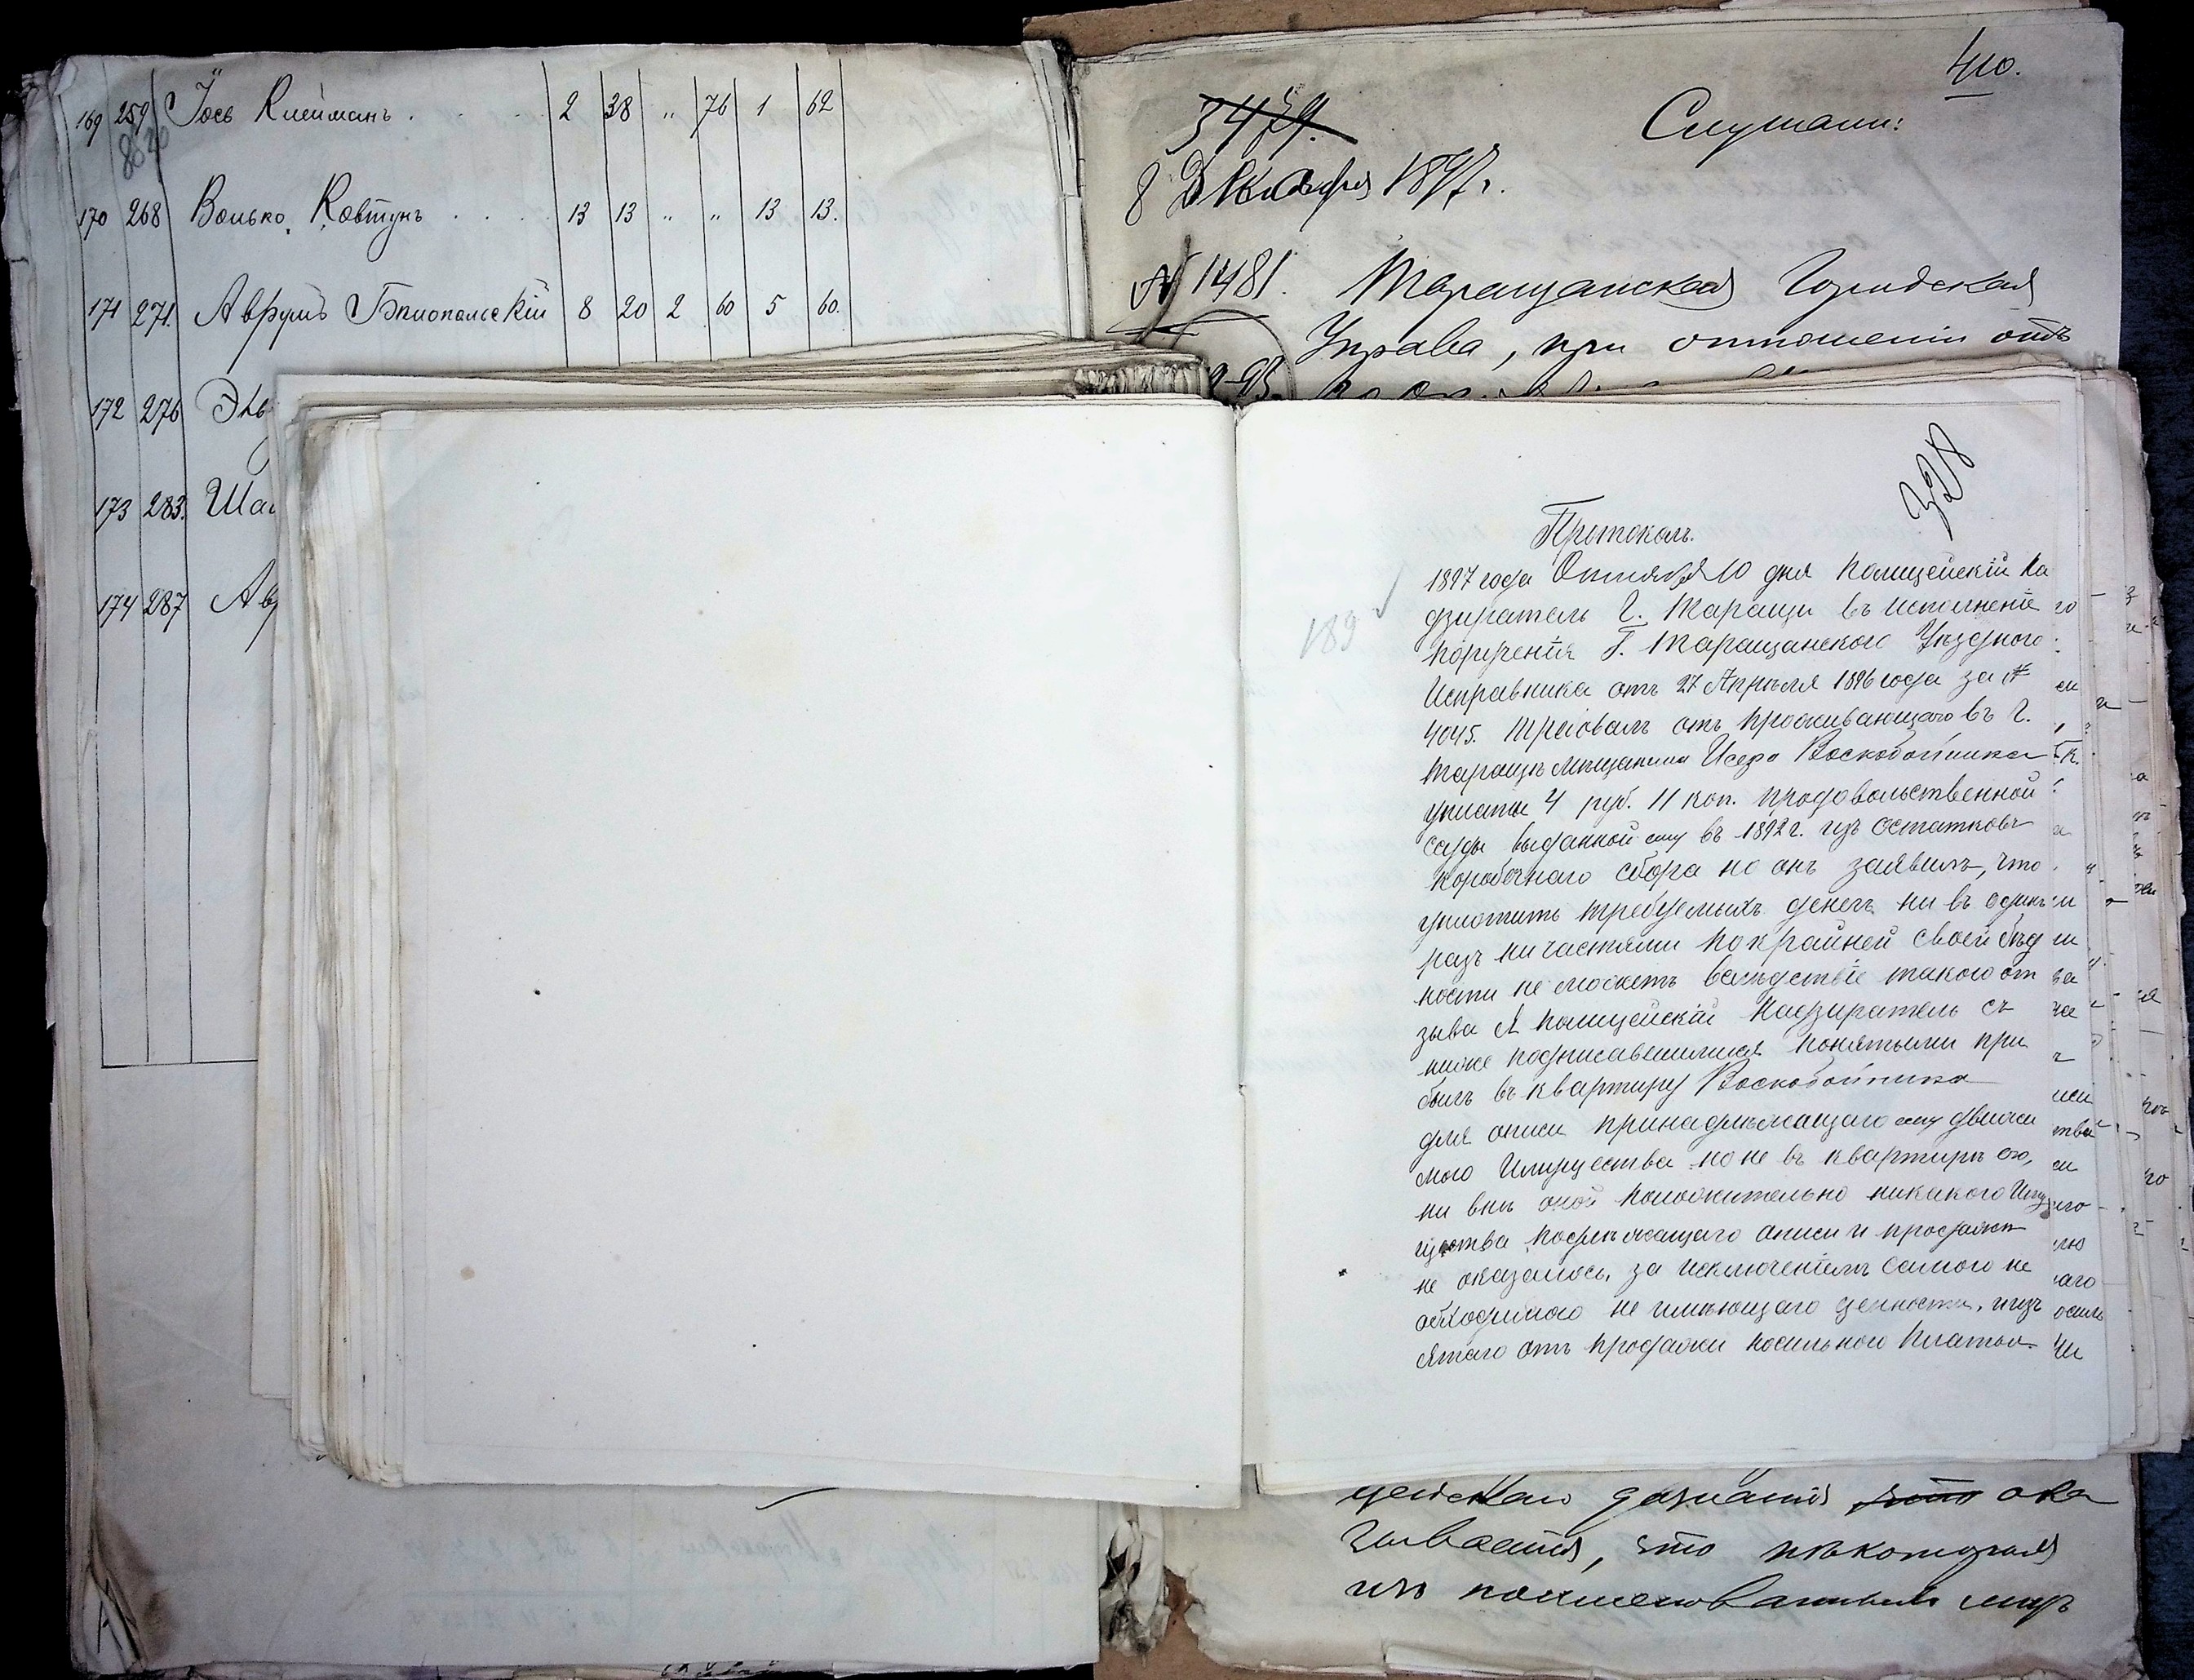 169 259 Іось Клейманъ . . . 2 38 „ 76 1 62
170 268 Волько Ковтунъ . . . 13 13 „ „ 13 13.
171 271. Аврумъ Бялопольскій 8 20 2 60 5 60.
172 276
173 283.
174 287
410.
Слушали:
3479.
8 Декабря 1897 г.
№ 1481. Таращанская Городская
Управа, при отношеніи отъ
328
Протоколъ.
189
1897 года Октября 10 дня Полицейскій На
дзиратель г. Таращи въ исполненіе
порученія Г. Таращанскаго Уѣзднаго
Исправника отъ 27 Апрѣля 1896 года за №
4045. Требовалъ отъ проживающаго въ г.
Таращѣ мѣщанина Исера Воскобойника
уплаты 4 руб. 11 коп. продовольственной
ссуды выданной ему въ 1892 г. изъ остатковъ
коробочнаго сбора но онъ заявилъ, что
уплотить требуемыхъ денегъ ни въ одинъ
разъ ни частями по крайней своей бѣд
ности не можетъ вслѣдствіе такого от
зыва я Полицейскій Надзиратель съ
ниже подписавшимися понятыми при
былъ въ квартиру Воскобойника
для описи принадлежащаго ему движи
маго Имущества но не въ квартирѣ его,
ни внѣ оной положительно никакого Иму
щества подлежащаго описи и продажѣ
не оказалось, за исключеніемъ самого не
обходимаго не имѣющаго ценности, и изъ
ятаго отъ продажи носильного платья
цейскаго дознанія что ока
зывается, что нѣкоторыя
изъ поименованныхъ лицъ